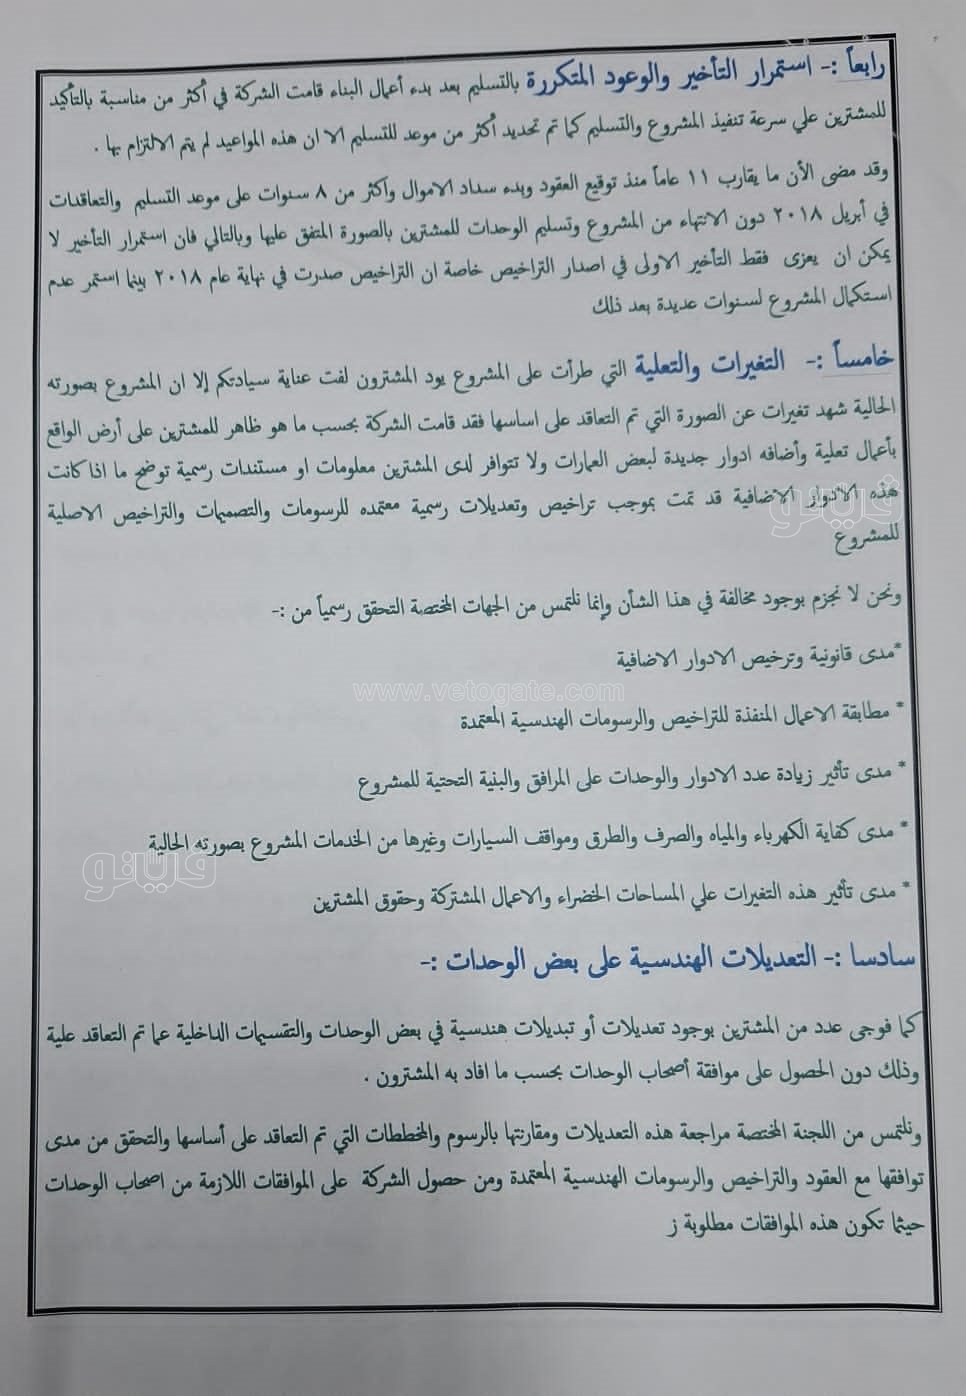 رابعاً :- استمرار التأخير والوعود المتكررة بالتسليم بعد بدء أعمال البناء قامت الشركة في أكثر من مناسبة بالتأكيد
للمشترين علي سرعة تنفيذ المشروع والتسليم كما تم تحديد أكثر من موعد للتسليم الا ان هذه المواعيد لم يتم الالتزام بها .
وقد مضى الأن ما يقارب ١١ عاماً منذ توقيع العقود وبدء سداد الاموال واكثر من ٨ سنوات على موعد التسليم والتعاقدات
في أبريل ٢٠١٨ دون الانتهاء من المشروع وتسليم الوحدات للمشترين بالصورة المتفق عليها وبالتالي فان استمرار التأخير لا
يمكن ان يعزى فقط التأخير الاولى في اصدار التراخيص خاصة ان التراخيص صدرت في نهاية عام ٢٠١٨ بينما استمر عدم
استكمال المشروع لسنوات عديدة بعد ذلك
خامساً :- التغيرات والتعلية التي طرأت على المشروع يود المشترون لفت عناية سيادتكم إلا ان المشروع بصورته
الحالية شهد تغيرات عن الصورة التي تم التعاقد على اساسها فقد قامت الشركة بحسب ما هو ظاهر للمشترين على أرض الواقع
بأعمال تعلية وأضافه ادوار جديدة لبعض العمارات ولا تتوافر لدى المشترين معلومات او مستندات رسمية توضح ما اذا كانت
هذه الادوار الاضافية قد تمت بموجب تراخيص وتعديلات رسمية معتمده للرسومات والتصميمات والتراخيص الاصلية
للمشروع
ونحن لا نجزم بوجود مخالفة في هذا الشأن وإنما نلتمس من الجهات المختصة التحقق رسمياً من :-
*مدى قانونية وترخيص الادوار الاضافية
* مطابقة الاعمال المنفذة للتراخيص والرسومات الهندسية المعتمدة
* مدى تأثير زيادة عدد الادوار والوحدات على المرافق والبنية التحتية للمشروع
* مدى كفاية الكهرباء والمياه والصرف والطرق ومواقف السيارات وغيرها من الخدمات المشروع بصورته الحالية
* مدى تأثير هذه التغيرات علي المساحات الخضراء والاعمال المشتركة وحقوق المشترين
سادسا :- التعديلات الهندسية على بعض الوحدات :-
كما فوجى عدد من المشترين بوجود تعديلات أو تبديلات هندسية في بعض الوحدات والتقسيمات الداخلية عما تم التعاقد علية
وذلك دون الحصول على موافقة أصحاب الوحدات بحسب ما افاد به المشترون .
ونلتمس من اللجنة المختصة مراجعة هذه التعديلات ومقارنتها بالرسوم والمخططات التي تم التعاقد على أساسها والتحقق من مدى
توافقها مع العقود والتراخيص والرسومات الهندسية المعتمدة ومن حصول الشركة على الموافقات اللازمة من اصحاب الوحدات
حيثما تكون هذه الموافقات مطلوبة ز
www.vetogate.com
فيتو
فيتو